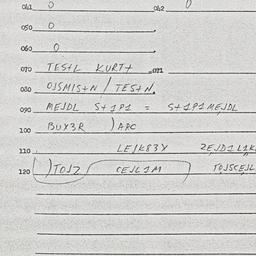 041 0 042 0
050 0
060 0
070 TESTL KURT+ 071
080 OJSMIS+N / TES+N
090 MEJDL S+1P1 = S+1P1MEJDL
100 BUY3R ) ARC
110 LE/K83Y 2EJD1L1K
120 )TOJZ CEJL1M TOJSCEJL